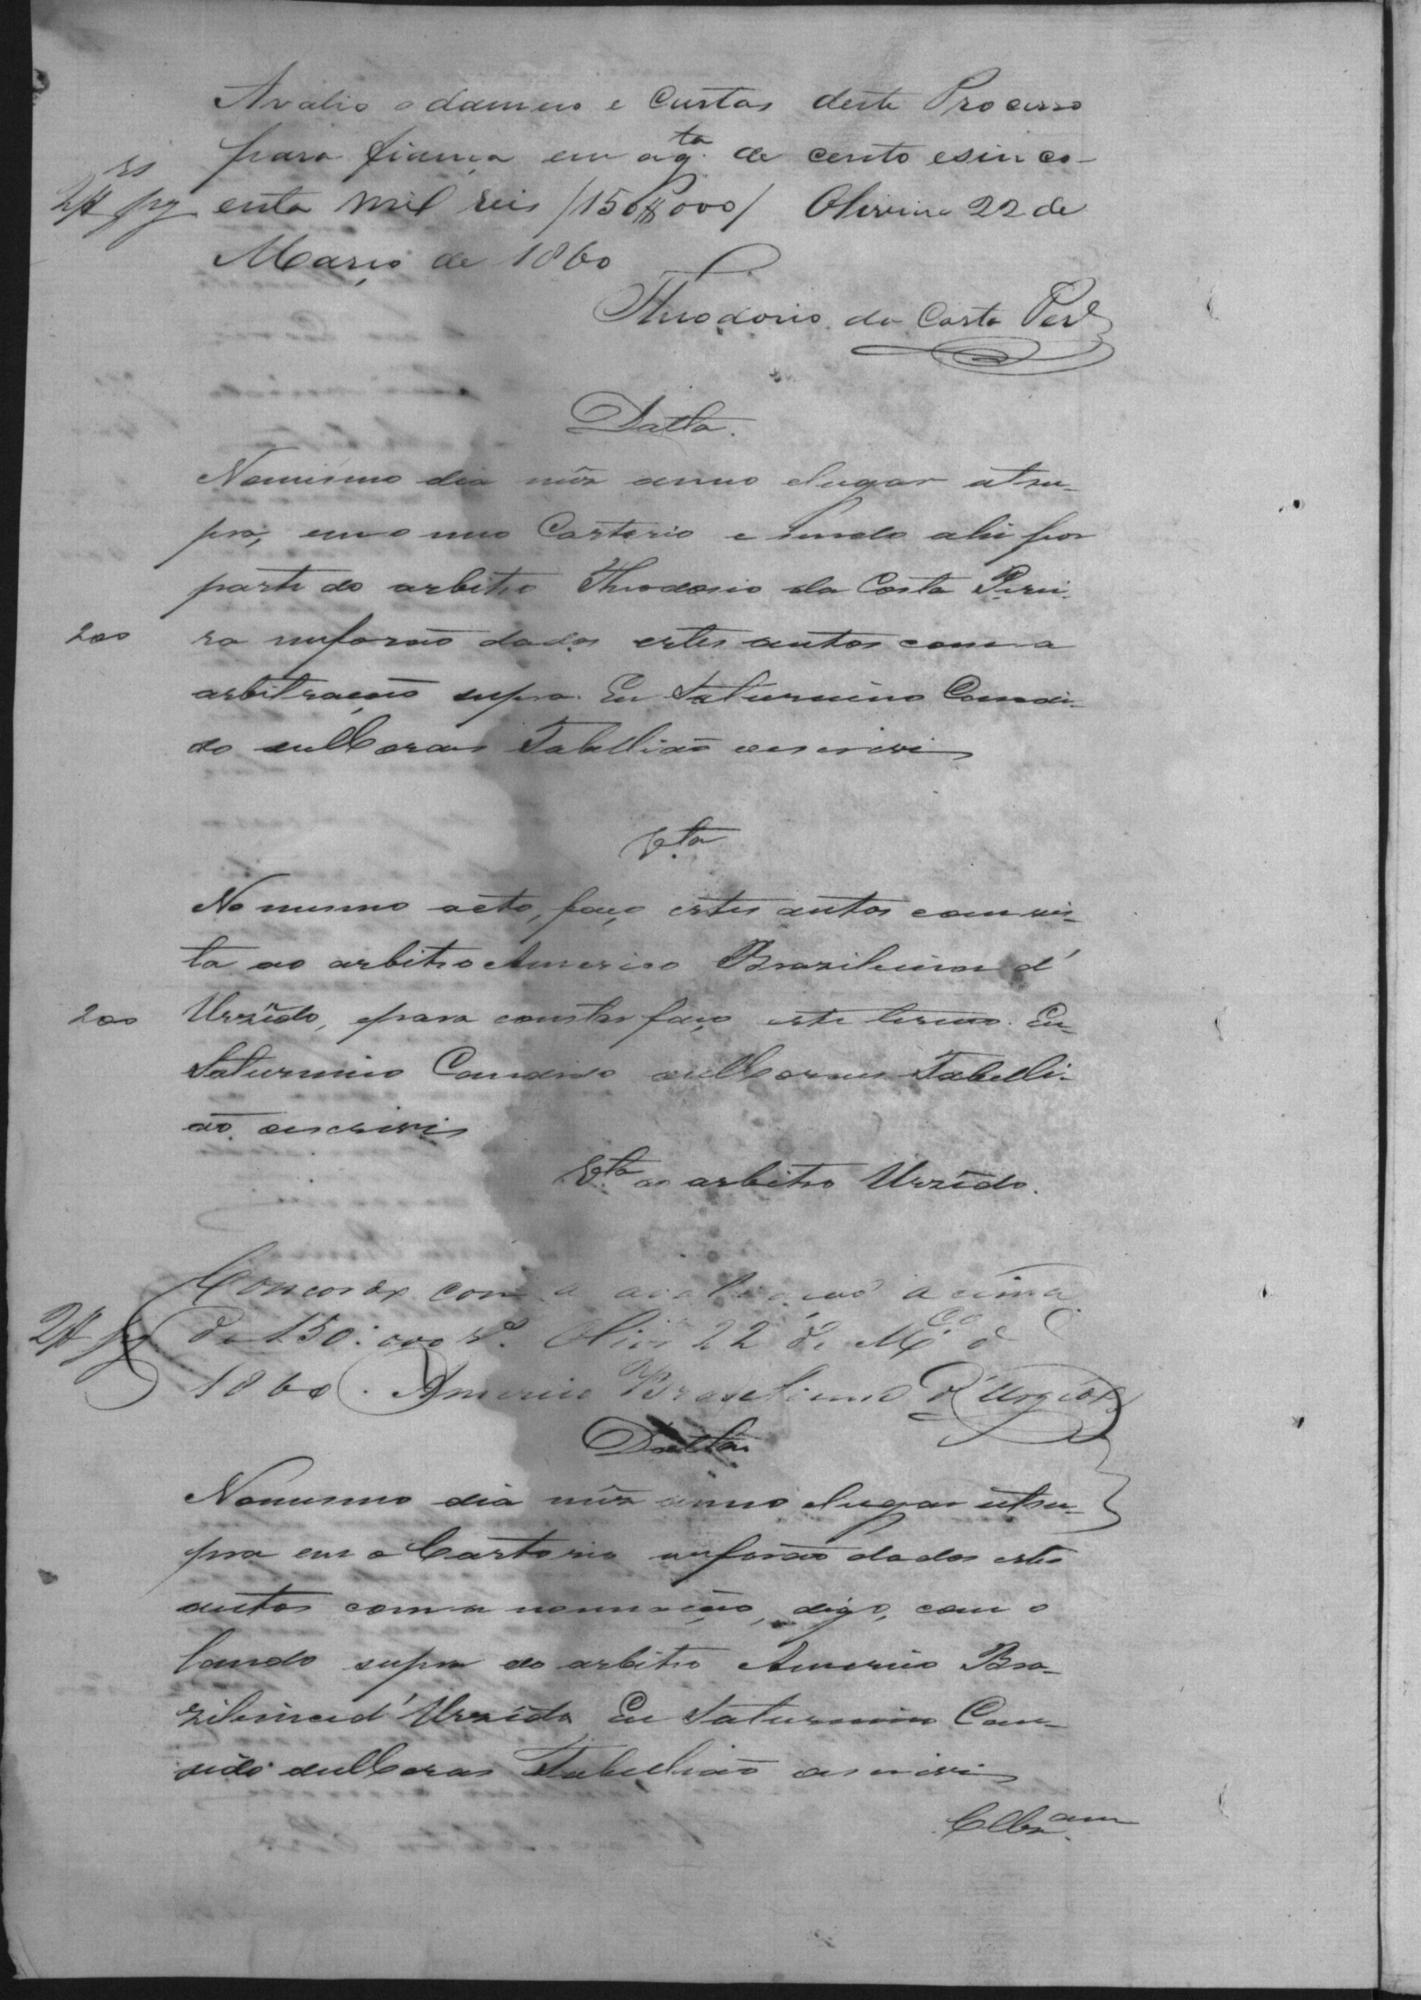 Avalio o damno e Custas deste Processo
para fiança em a q.ta de cento e sinco-
rs
2$ pg
enta mil reis /150$000/ Oliveira 22 de
Março de 1860
Theodosio da Costa Per.a
Datta.
No mesmo dia mez anno e lugar utsu-
pra, em o meo Cartorio e sendo ahi por
parte do arbitro Theodosio da Costa Perei-
200
ra me forão dados estes autos com a
arbitração supra. Eu Saturnino Candi-
do de Moraes Tabellião o escrevi
V.ta
No mesmo acto, faço estes autos com vis-
ta ao arbitro Americo Brazileiro d'
200
Urzêdo, e para constar faço este termo. Eu
Saturnino Candido de Moraes Tabelli-
ão o escrevi
V.ta ao arbitro Urzêdo.
Concordo com a avaliação acima
2$ pg
de 150:000 r.s Oliv.a 22 de M.ço d
1860. Americo Brasileiro d'Urzedo
Datta
No mesmo dia mez anno e lugar utsu-
pra em o Cartorio me forão dados estes
autos com a nomeação, digo, com o
laudo supra do arbitro Americo Bra-
zileiro d'Urzêdo Eu Saturnino Can-
dido de Moraes Tabellião o escrevi